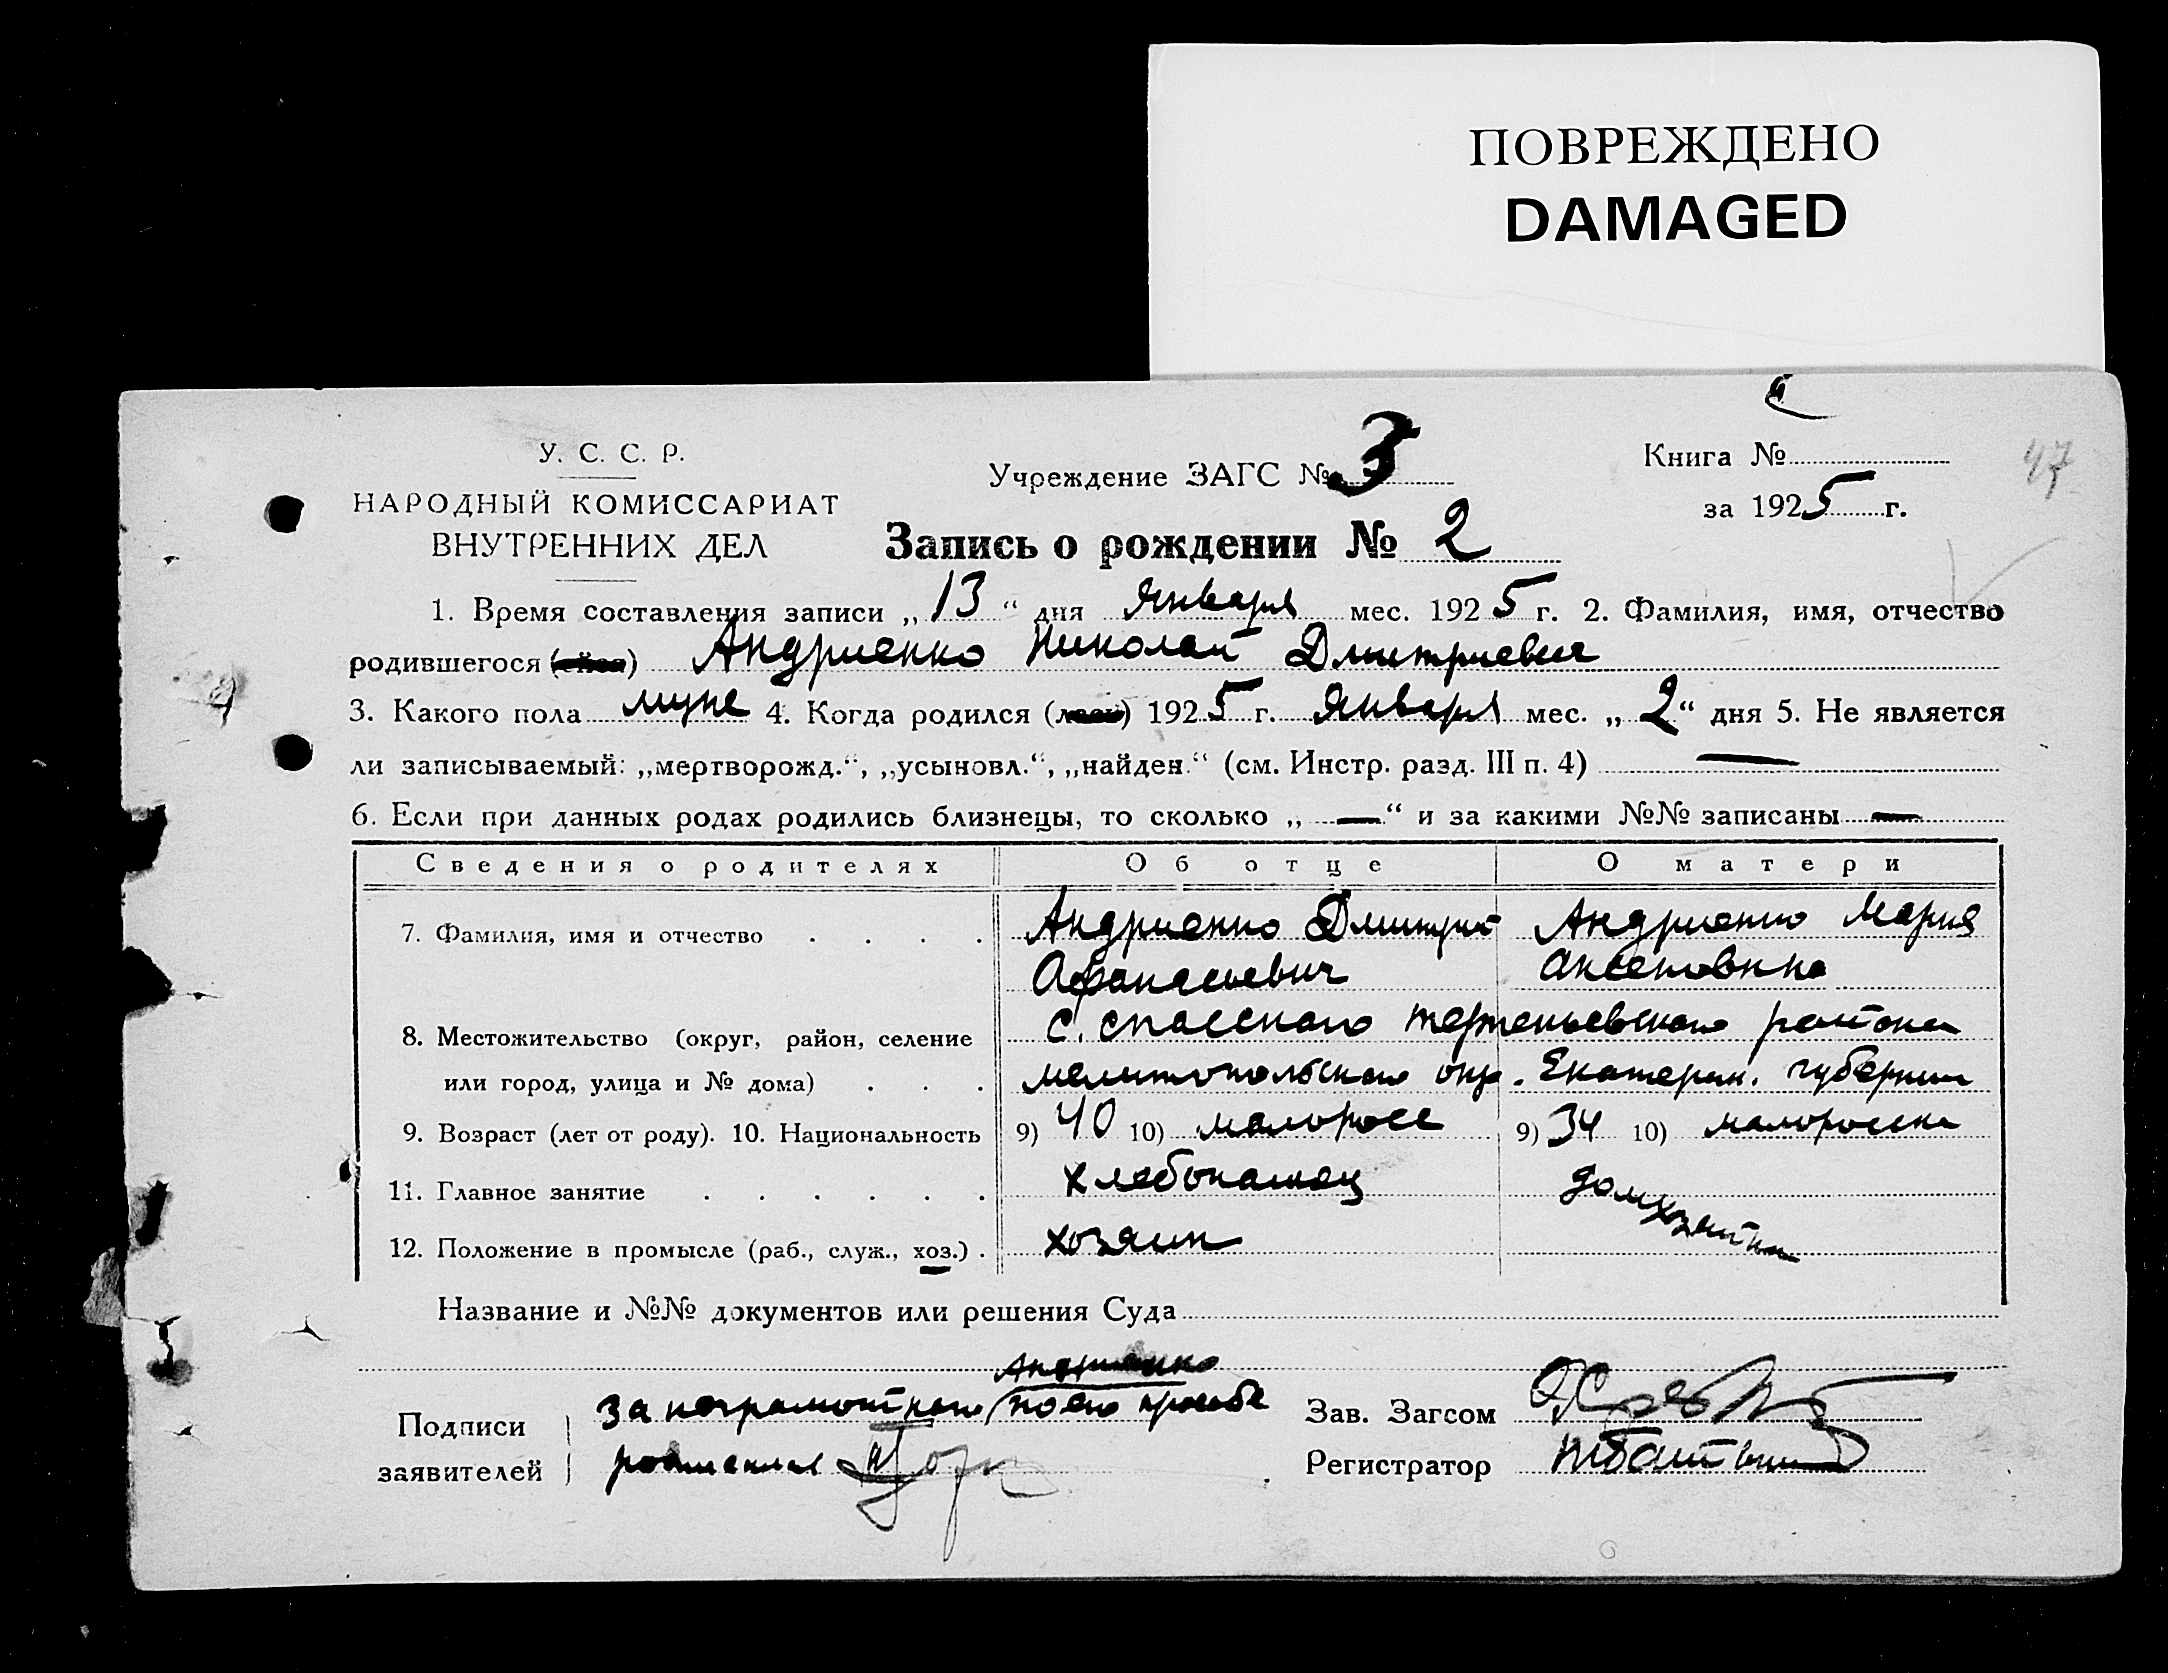 ПОВРЕЖДЕНО
DAMAGED
У. С. С. Р.
НАРОДНЫЙ КОМИССАРИАТ
ВНУТРЕННИХ ДЕЛ
Учреждение ЗАГС № 3
Книга №
47
за 1925 г.
Запись о рождении № 2
1. Время составления записи „13“ дня Января мес. 1925 г. 2. Фамилия, имя, отчество
родившегося Андриенко Николай Дмитриевич
3. Какого пола муже 4. Когда родился 1925 г. Января мес. „2“ дня 5. Не является
ли записываемый: „мертворожд.“, „усыновл.“, „найден.“ (см. Инстр. разд. III п. 4) —
6. Если при данных родах родились близнецы, то сколько „—“ и за какими №№ записаны —
Сведения о родителях Об отце О матери
7. Фамилия, имя и отчество . . . . Андриенко Дмитрий Андриенко Мария
Афанасьевич Аксеновна
8. Местожительство (округ, район, селение с. Спасского Терпеньевского района
или город, улица и № дома) . . . Мелитопольского окр. Екатерин. губернии
9. Возраст (лет от роду). 10. Национальность 9) 40 10) малоросс 9) 34 10) малоросска
11. Главное занятие . . . . . . хлебопашец домхозяйка
12. Положение в промысле (раб., служ., хоз.) . хозяин
Название и №№ документов или решения Суда
Андриенко
Подписи за неграмотного по его просьбе Зав. Загсом
заявителей расписался Регистратор